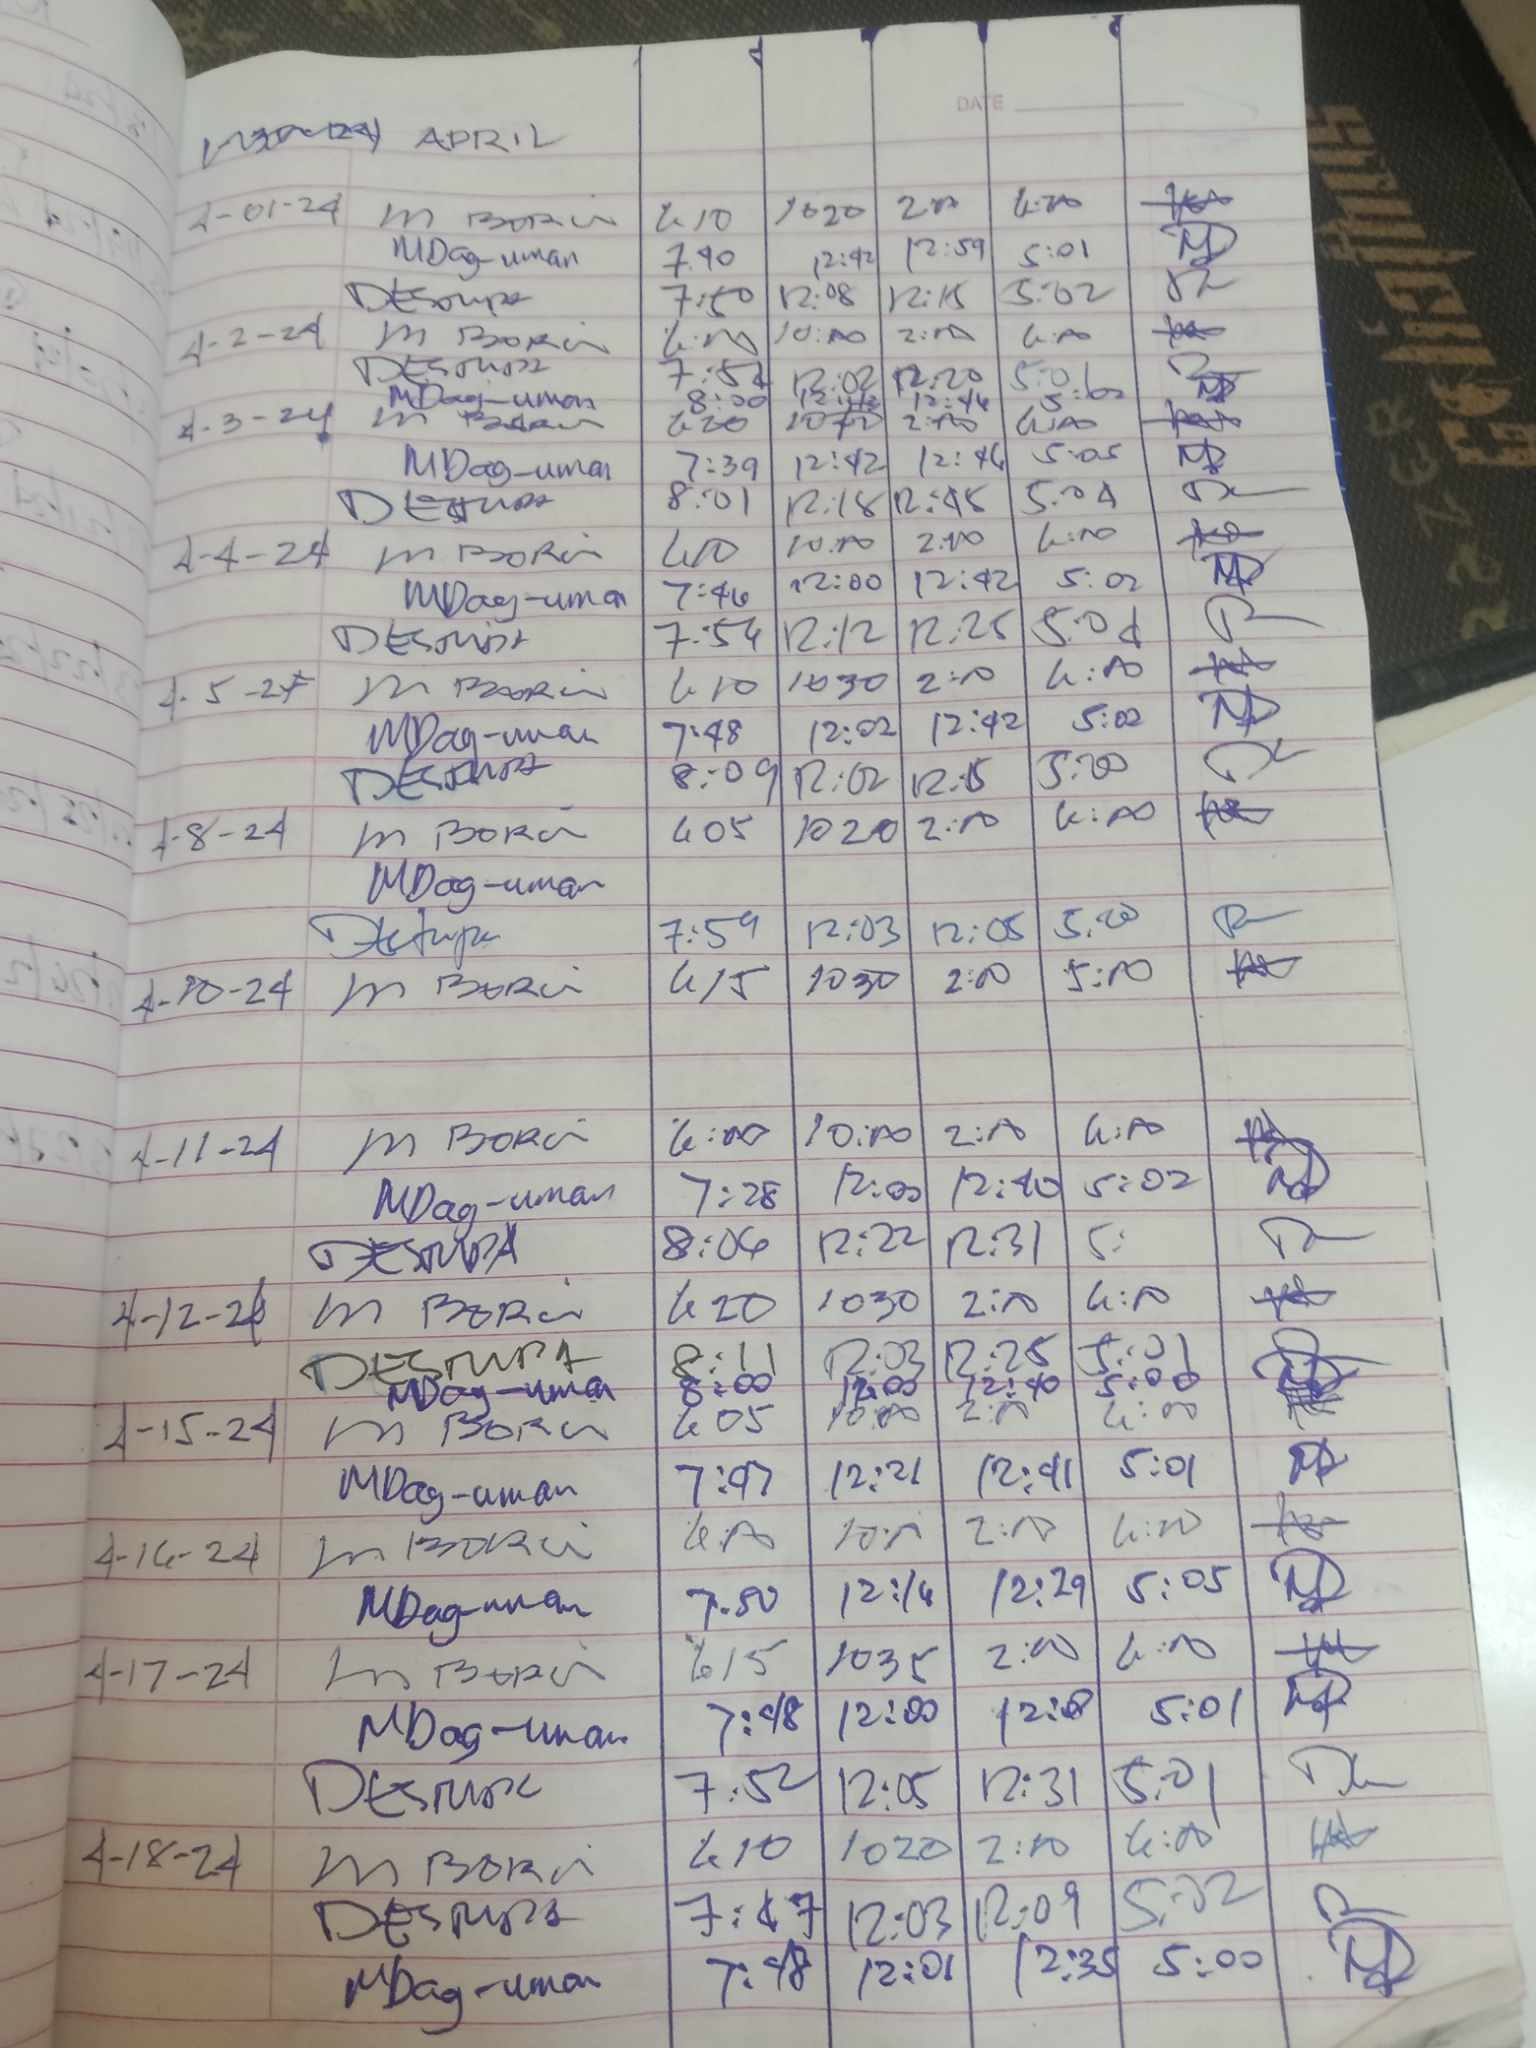 APRIL
DATE
4-01-24 M BORCI 610 1020 2:00 6:00
MDag-uman 7:40 12:42 12:59 5:01
DESTUPA 7:50 12:08 12:15 5:02
4-2-24 M BORCI 6:00 10:00 2:00 6:00
DESTUPA 12:02 12:20 5:01
MDag-uman 8:00 12:46 5:02
4-3-24 M BORCI 620 2:00 6:00
MDag-uman 7:39 12:42 12:46 5:05
DESTUPA 8:01 12:18 12:45 5:04
4-4-24 M BORCI 610 10:00 2:00 6:00
MDag-uman 7:46 12:00 12:42 5:02
DESTUPA 7:54 12:12 12:25 5:04
4-5-24 M BORCI 610 1030 2:00 6:00
MDag-uman 7:48 12:02 12:42 5:02
DESTUPA 8:09 12:02 12:15 5:00
4-8-24 M BORCI 605 1020 2:00 6:00
MDag-uman
DEstupa 7:59 12:03 12:05 5:00
4-10-24 M BORCI 615 1030 2:00 5:00
4-11-24 M BORCI 6:00 10:00 2:00 6:00
MDag-uman 7:28 12:00 12:40 5:02
DESTUPA 8:06 12:22 12:31 5:
4-12-24 M BORCI 620 1030 2:00 6:00
DESTUPA 8:11 12:03 12:25 5:01
MDag-uman 8:00 12:00 12:40 5:00
4-15-24 M BORCI 605 10:00 2:00 6:00
MDag-uman 7:47 12:21 12:41 5:01
4-16-24 M BORCI 6:00 10:00 2:00 6:00
MDag-uman 7:50 12:16 12:29 5:05
4-17-24 M BORCI 615 1035 2:00 6:00
MDag-uman 7:48 12:00 5:01
DESTUPA 7:52 12:05 12:31 5:01
4-18-24 M BORCI 610 1020 2:00 6:00
DESTUPA 7:47 12:03 12:09 5:02
MDag-uman 7:48 12:01 12:35 5:00